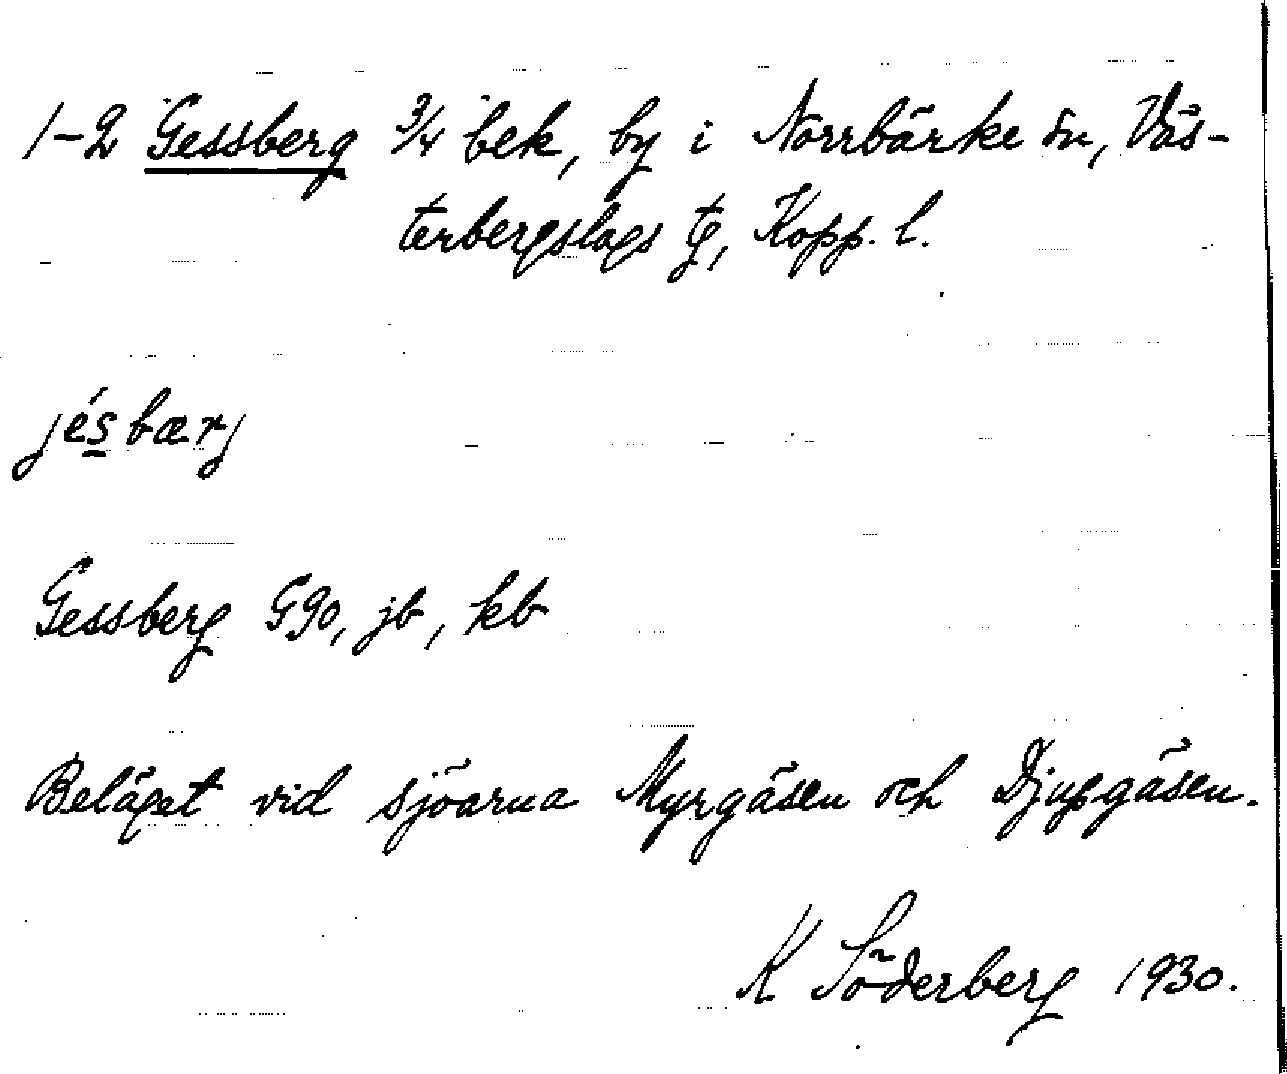 1-2 Gessberg 3/4 bek, by i Norrbärke sn, Väs-
terbergslags tg, Kopp. l.
jésbærj
Gessberg G90, jb, kb
Beläget vid sjöarna Myrgäsen och Djupgäsen.
K Söderberg 1930.